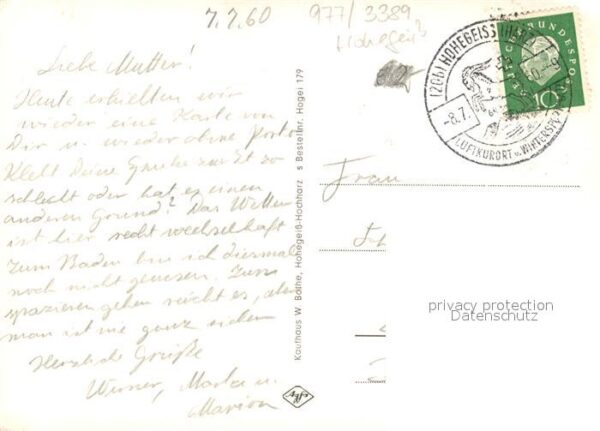 7.7.60
977/3389
Hohegeiß
Liebe Mutter!
Heute erhielten wir
wieder eine Karte von
Dir u. wieder ohne Porto
Klebt Deine zur Zt so
schlecht oder hat es einen
anderen Grund? Das Wetter
ist hier recht wechselhaft
Zum Baden bin ich diesmal
noch nicht gewesen. Zum
spazieren gehen reicht es, aber
man ist nie ganz sicher
Herzliche Grüße
Werner, u.
Marion
Kaufhaus W. Bothe, Hohegeiß-Hochharz s Bestellnr. Hogei 179
Frau
(20b) HOHEGEISS
-8.7.
LUFTKURORT u. WINTERSP
DEUTSCHE BUNDESPOST
10
privacy protection
Datenschutz